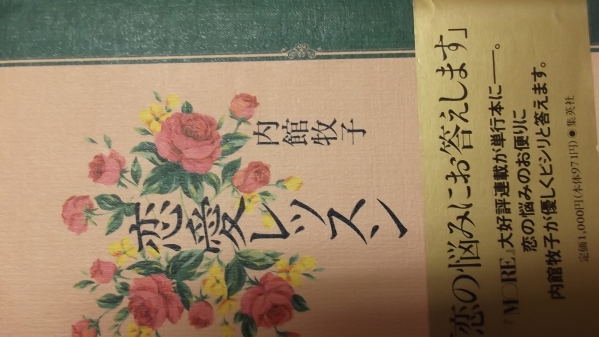 恋愛レッスン
内館牧子
恋の悩みにお答えします」
『MORE』大好評連載が単行本に——。
恋の悩みのお便りに
内館牧子が優しくピシリと答えます。
定価1,000円(本体971円)●集英社